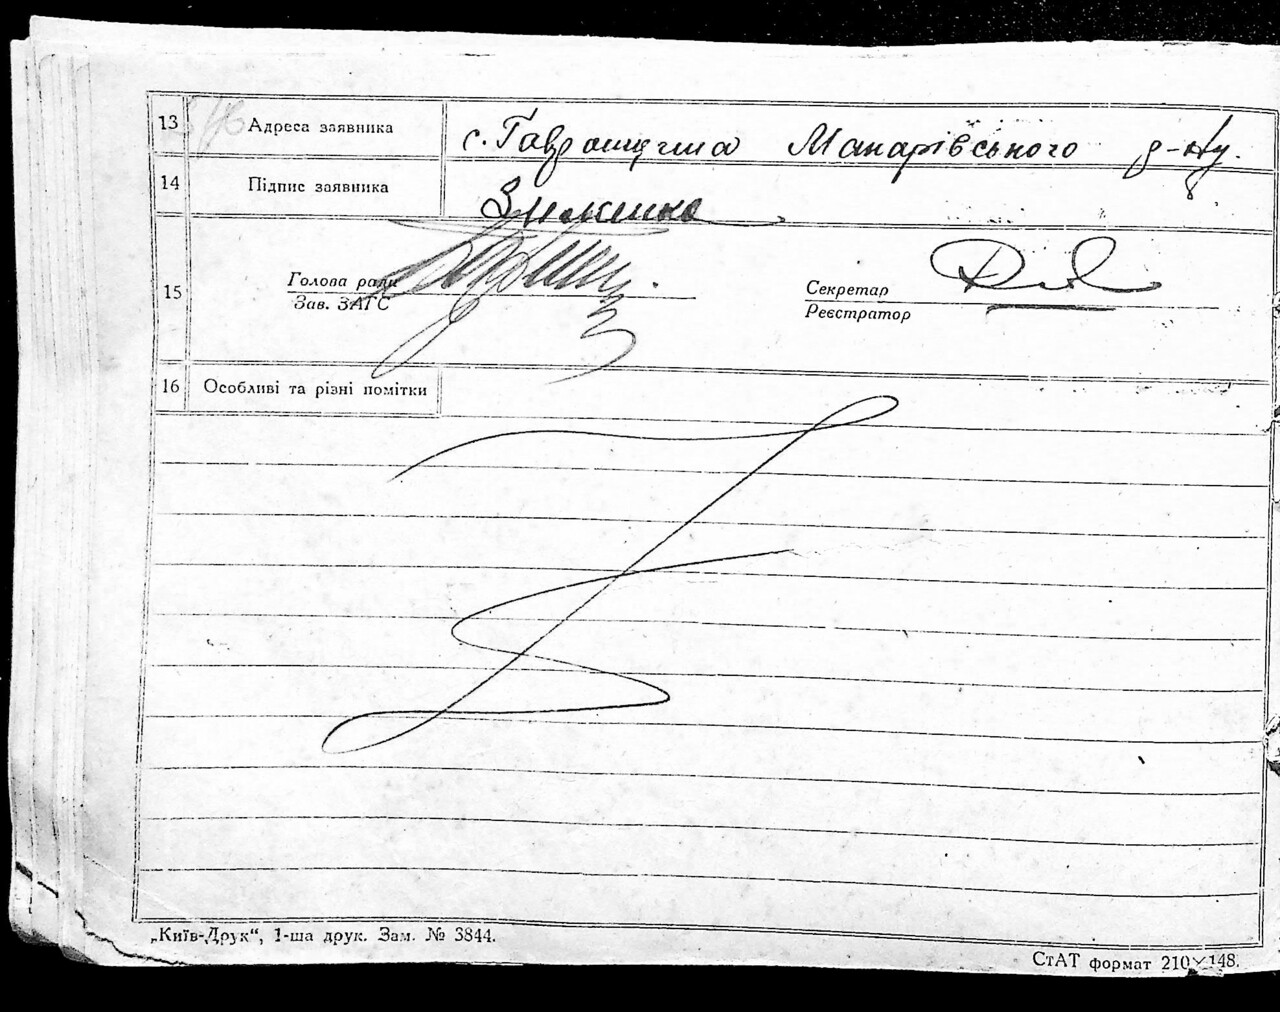 13 Адреса заявника с. Гавронщина Макарівського р-ну.
14 Підпис заявника
15 Голова ради
Зав. ЗАГС
Секретар
Реєстратор
16 Особливі та різні помітки
„Київ-Друк“, 1-ша друк. Зам. № 3844.
СтАТ формат 210×148.